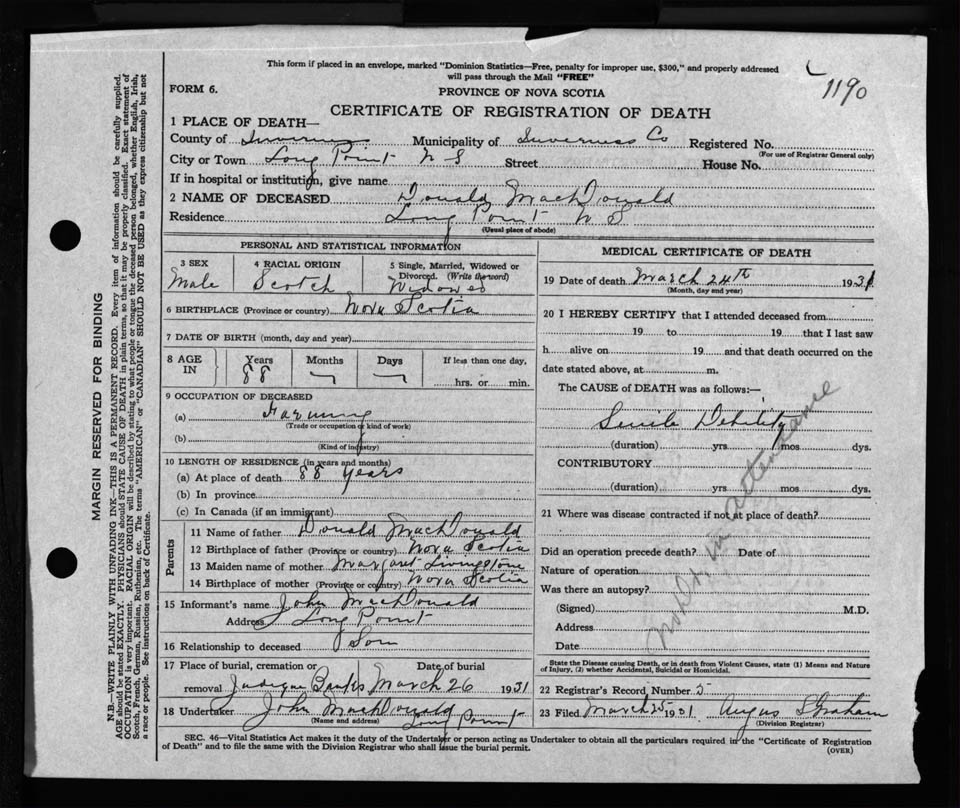 This form if placed in an envelope, marked "Dominion Statistics—Free, penalty for improper use, $300," and properly addressed
will pass through the Mail "FREE"
1190
FORM 6.
PROVINCE OF NOVA SCOTIA
CERTIFICATE OF REGISTRATION OF DEATH
1 PLACE OF DEATH—
County of Inverness Municipality of Inverness Co Registered No.
(For use of Registrar General only)
City or Town Long Point N S Street House No.
If in hospital or institution, give name
2 NAME OF DECEASED Donald MacDonald
Residence Long Point N S
(Usual place of abode)
PERSONAL AND STATISTICAL INFORMATION
3 SEX 4 RACIAL ORIGIN 5 Single, Married, Widowed or
Divorced. (Write the word)
Male Scotch Widowed
6 BIRTHPLACE (Province or country) Nova Scotia
7 DATE OF BIRTH (month, day and year)
8 AGE IN Years Months Days If less than one day,
88 hrs. or min.
9 OCCUPATION OF DECEASED
(a) Farming
(Trade or occupation or kind of work)
(b)
(Kind of industry)
10 LENGTH OF RESIDENCE (in years and months)
(a) At place of death 88 years
(b) In province
(c) In Canada (if an immigrant)
Parents
11 Name of father Donald MacDonald
12 Birthplace of father (Province or country) Nova Scotia
13 Maiden name of mother Margaret Livingstone
14 Birthplace of mother (Province or country) Nova Scotia
15 Informant's name John MacDonald
Address Long Point
16 Relationship to deceased Son
17 Place of burial, cremation or Date of burial
removal Judique Banks March 26 1931
18 Undertaker John MacDonald
(Name and address) Long Point
MEDICAL CERTIFICATE OF DEATH
19 Date of death March 24th 1931
(Month, day and year)
20 I HEREBY CERTIFY that I attended deceased from
19 to 19 that I last saw
h alive on 19 and that death occurred on the
date stated above, at m.
The CAUSE of DEATH was as follows:—
Senile Debility
(duration) yrs mos dys.
CONTRIBUTORY
(duration) yrs mos dys.
No Dr. in attendance
21 Where was disease contracted if not at place of death?
Did an operation precede death? Date of
Nature of operation
Was there an autopsy?
(Signed) M.D.
Address
Date
State the Disease causing Death, or in death from Violent Causes, state (1) Means and Nature
of Injury, (2) whether Accidental, Suicidal or Homicidal.
22 Registrar's Record Number 5
23 Filed March 25 1931 Angus Graham
(Division Registrar)
SEC. 46—Vital Statistics Act makes it the duty of the Undertaker or person acting as Undertaker to obtain all the particulars required in the "Certificate of Registration
of Death" and to file the same with the Division Registrar who shall issue the burial permit.
(OVER)
MARGIN RESERVED FOR BINDING
N.B.—WRITE PLAINLY WITH UNFADING INK—THIS IS A PERMANENT RECORD. Every item of information should be carefully supplied.
AGE should be stated EXACTLY. PHYSICIANS should STATE CAUSE OF DEATH in plain terms, so that it may be properly classified. Exact statement of
OCCUPATION is very important. RACIAL ORIGIN will be described by stating to what people or tongue the deceased person belonged, whether English, Irish,
Scotch, French, German, Russian, Ruthenian, etc. The terms "AMERICAN" or "CANADIAN" SHOULD NOT BE USED as they express citizenship but not
a race or people. See instructions on back of Certificate.